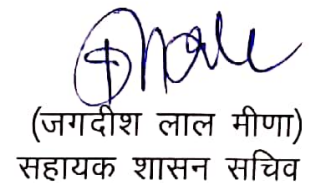 (जगदीश लाल मीणा)
सहायक शासन सचिव